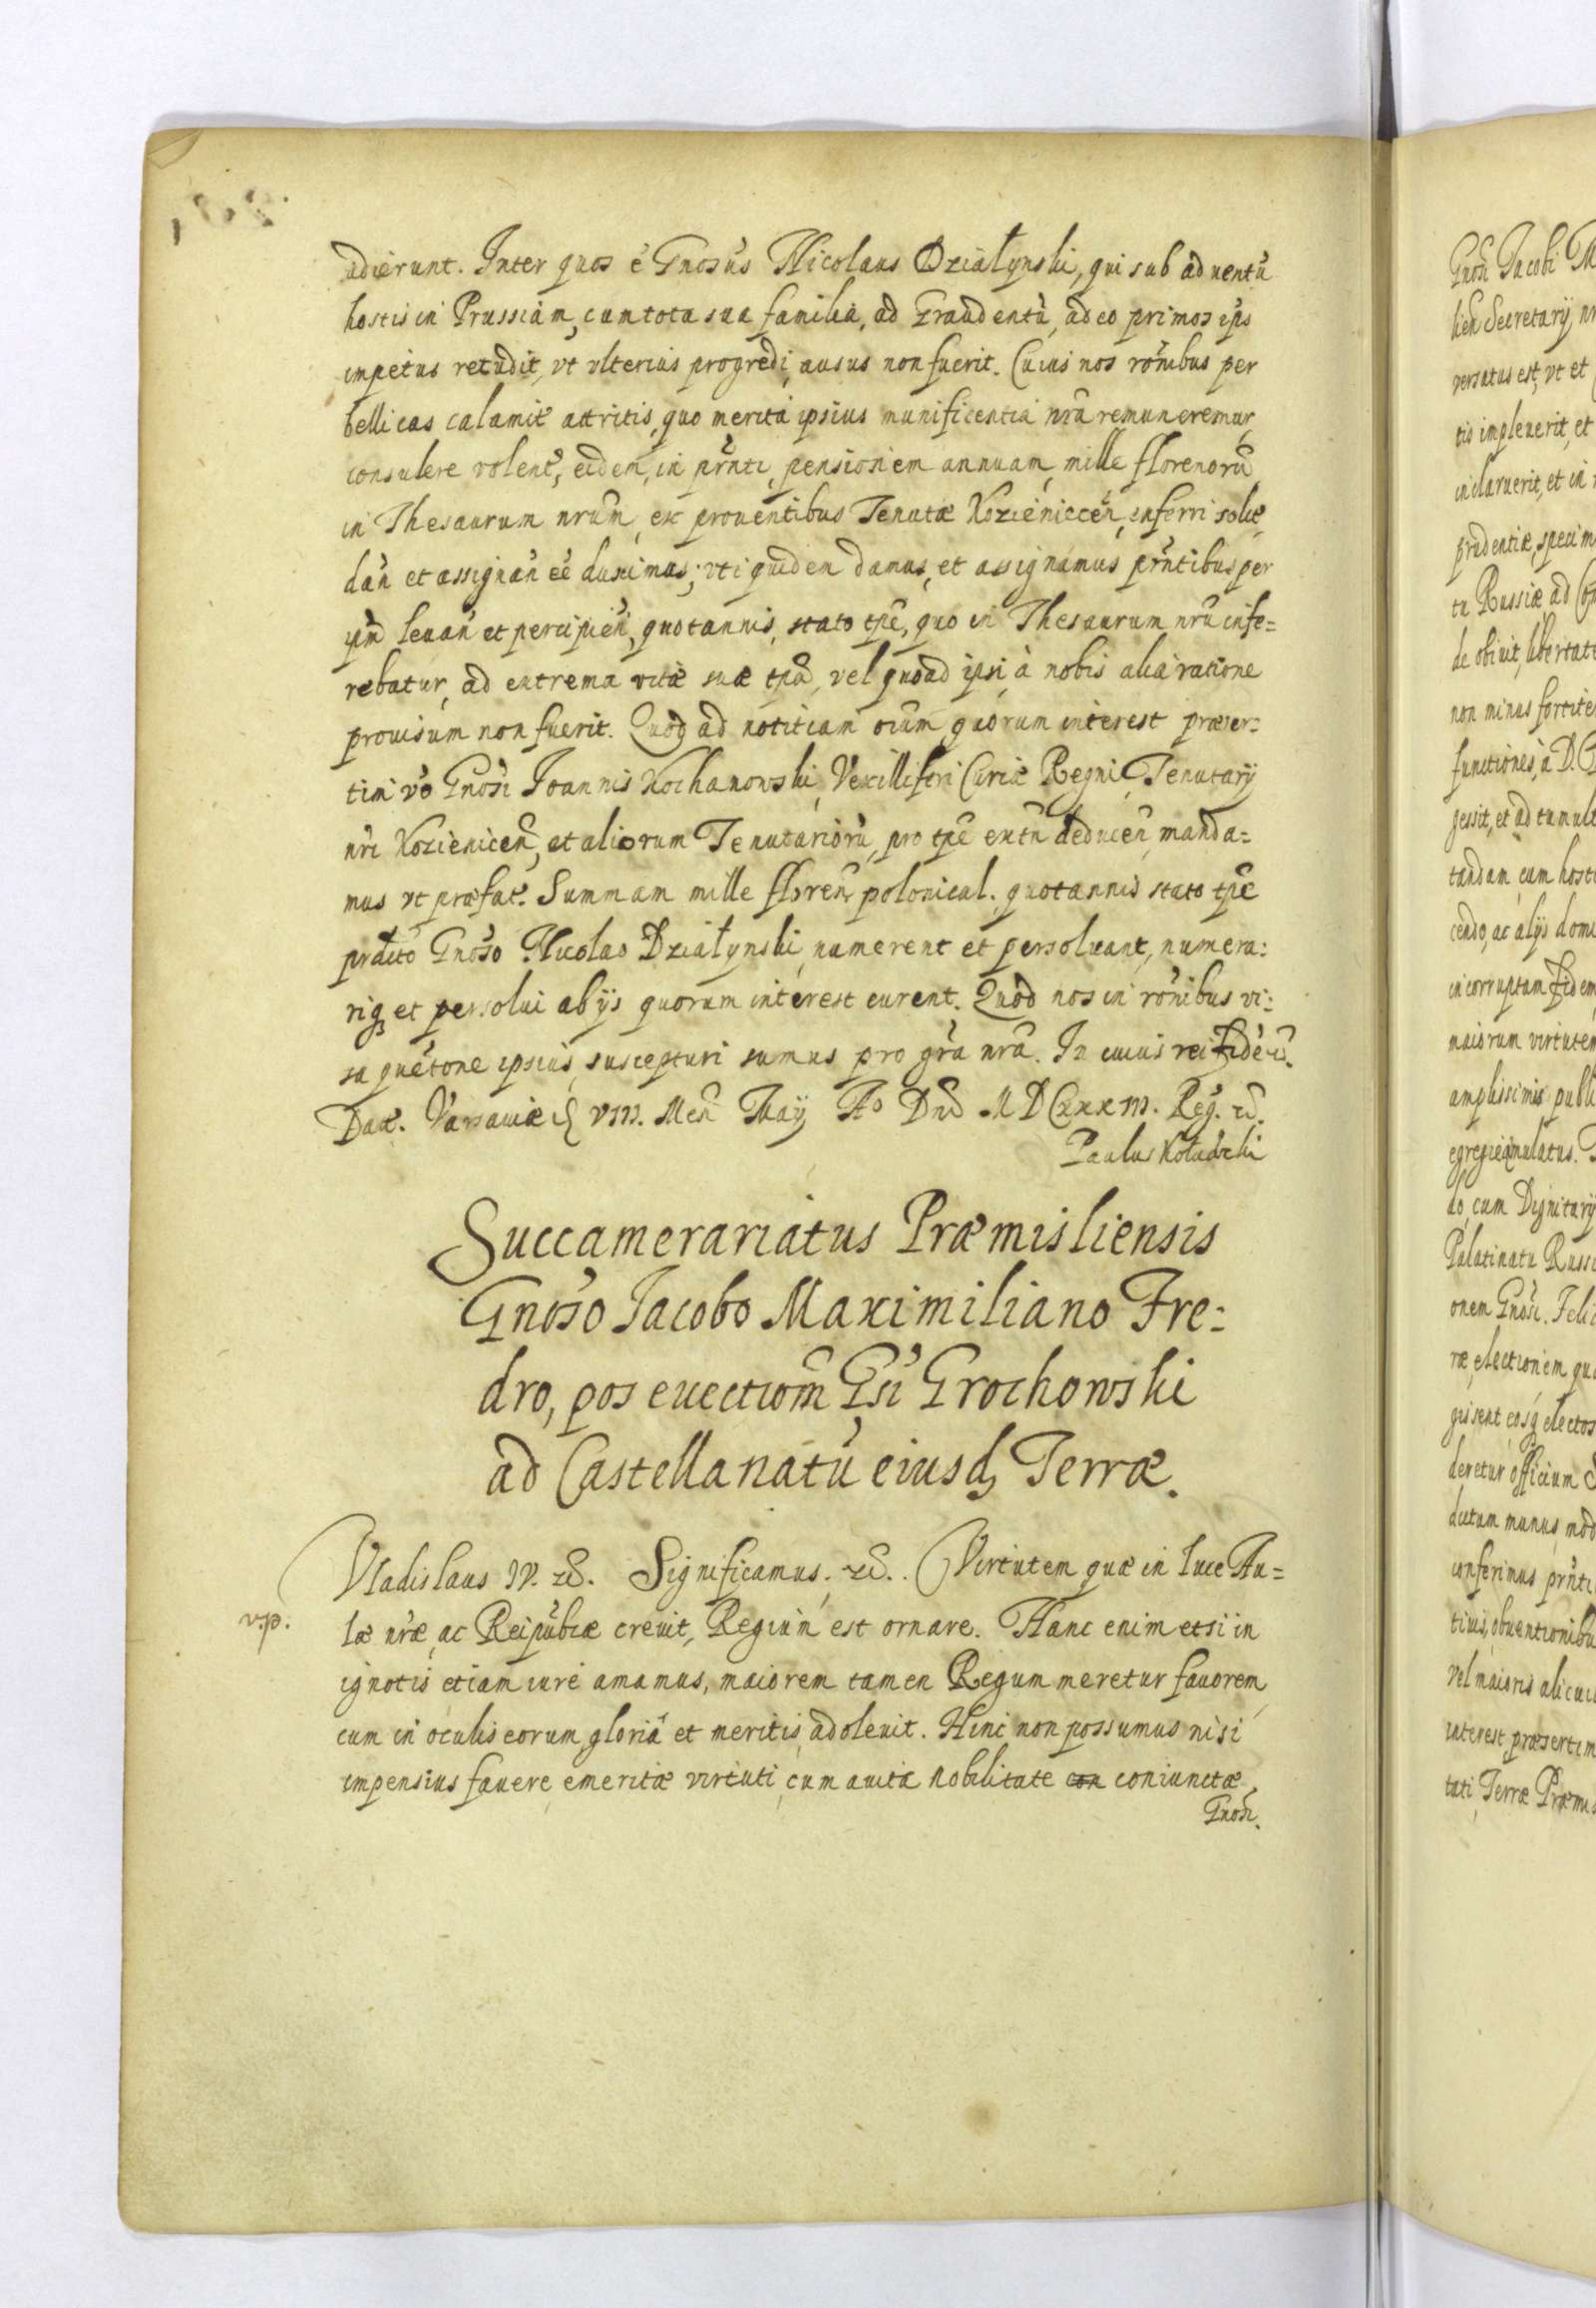 adierunt. Inter quos e Gnosus Nicolaus Działynski, qui sub aduentu
hostis in Prussiam, cum tota sua familia, ad Graudentu, adeo primos ips
impetus retudit, vt vlterius progredi, ausus non fuerit. Cuius nos ronibus per
bellicas calamit attritis, quo merita ipsius munificentia nra remuneremur,
consulere volent, eidem, in prnti, pensionem annuam, mille florenoru
in Thesaurum nrum, ex prouentibus Tenutæ Kozieniccen, inferri solit
dan et assignan ee duximus; vti quidem damus, et assignamus prntibus per
ipm leuan et percipien, quotannis, stato tpe, quo in Thesaurum nru infe=
rebatur, ad extrema vitæ suæ tpa, vel quoad ipsi, à nobis alia ratione
prouisum non fuerit. Quod ad notitiam oium quorum interest præser=
tim vo Gnosi Ioannis Kochanowski, Vexilliferi Curiæ Regni, Tenutarij
nri Kozienicen, et aliorum Tenutarioru, pro tpe extn deducen, manda=
mus vt præfat. Summam mille floren polonical. quotannis stato tpe
prdicto Gnoso Nicolao Działynski, numerent et persoluant, numera:
riq et persolui ab ijs quorum interest curent. Quod nos in ronibus vi:
sa quetone ipsius, suscepturi sumus pro gra nra. In cuius rei Fide etc.
Dat. Varsauiæ VIII. Men Maij Ao Dni MDCXXXIII. Reg. etc.
Paulus Kołudzki
Succamerariatus Præmisliensis
Gnoso Iacobo Maximiliano Fre:
dro, pos euectiom Gsi Grochowski
ad Castellanatu eiusd Terræ.
Vladislaus IV. etc. Significamus. etc. Virtutem quæ in luce Au=
v.p.
læ nræ ac Reipubcæ creuit, Regium est ornare. Hanc enim etsi in
ignotis etiam iure amamus, maiorem tamen Regum meretur fauorem,
cum in oculis eorum, gloriâ et meritis, adoleuit. Hinc non possumus nisi
impensius fauere emeritæ virtuti, cum auita nobilitate con coniunctæ,
Gnosi.
Gnosi Iacobi M
lien Secretarij nr
versatus est, vt et
tis impleuerit, et
inclaruerit, et in
prudentiæ, specim
tu Russiæ, ad Co
de obiuit, libertati
non minus fortite
functiones, à D. G
gessit, et ad tumult
tandam, cum hosti
cendo, ac alijs dome
incorruptam Fidem
maiorum virtutem
amplissimis publi
egregie æmulatus. T
do, cum Dignitarij
Palatinatu Russi
onem Gnosi. Feli
ræ, electionem qua
gissent eosq electos
deretur officium S
dictum munus mod
conferimus prnti
tiuis, obuentionibu
vel maioris alicuiu
interest præsertim
tati Terræ Præmis